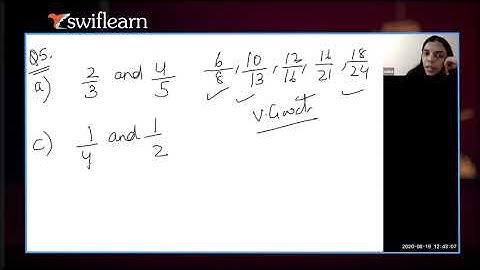 swiflearn
Q5.
a) 2/3 and 4/5 6/8, 10/13, 12/16, 16/21, 18/24
V. Good
c) 1/4 and 1/2
2020-08-19 12:43:07